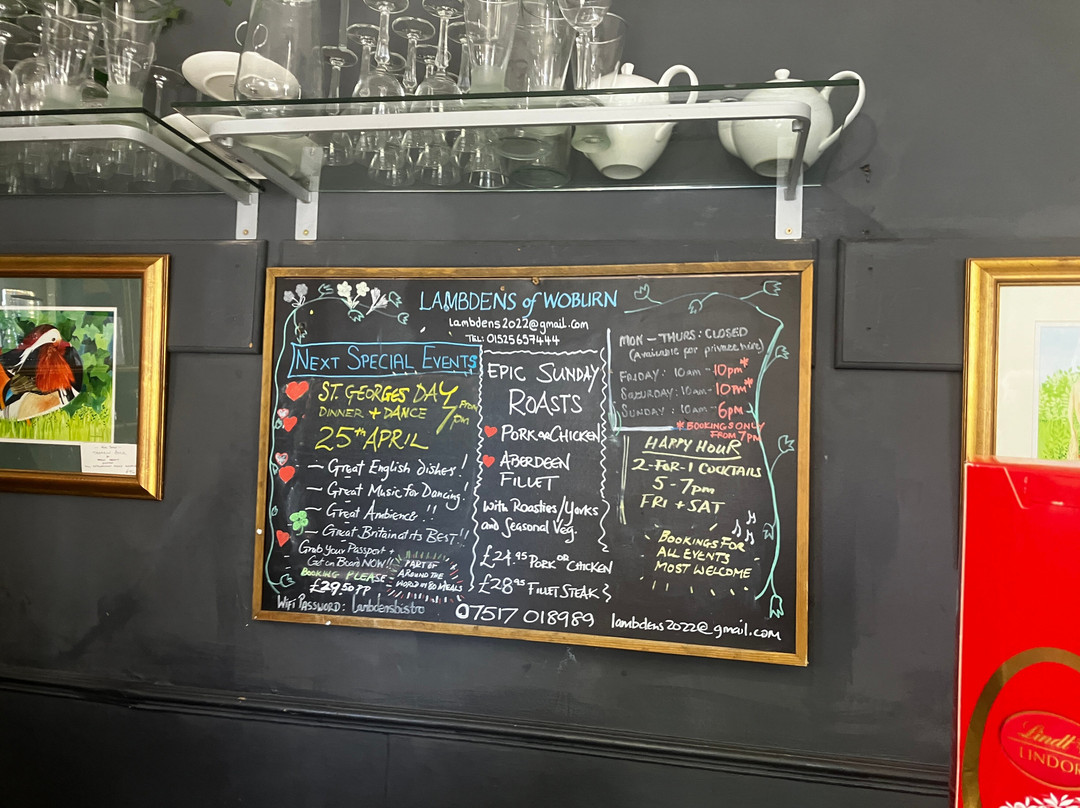 LAMBDENS of WOBURN
lambdens2022@gmail.com
TEL: 01525657444
NEXT SPECIAL EVENTS
ST. GEORGES DAY
DINNER + DANCE
FROM
7pm
25TH APRIL
— Great English dishes!
— Great Music for Dancing!
— Great Ambience!!
— Great Britain at its BEST!!
Grab Your Passport +
Get on Board NOW!!
BOOKING PLEASE
£29.50 PP
PART OF
AROUND THE
WORLD IN 80 MEALS
WIFI PASSWORD: Lambdensbistro
EPIC SUNDAY
ROASTS
PORK OR CHICKEN
ABERDEEN
FILLET
with Roasties/Yorks
and Seasonal Veg.
£24.95 PORK OR CHICKEN
£28.95 FILLET STEAK
07517 018989
MON – THURS: CLOSED
(available for private hire)
FRIDAY: 10am – 10pm*
SATURDAY: 10am – 10pm*
SUNDAY: 10am – 6pm
*BOOKINGS ONLY
FROM 7pm
HAPPY HOUR
2-FOR-1 COCKTAILS
5 – 7pm
FRI + SAT
BOOKINGS FOR
ALL EVENTS
MOST WELCOME
lambdens2022@gmail.com
Lindt
LINDOR